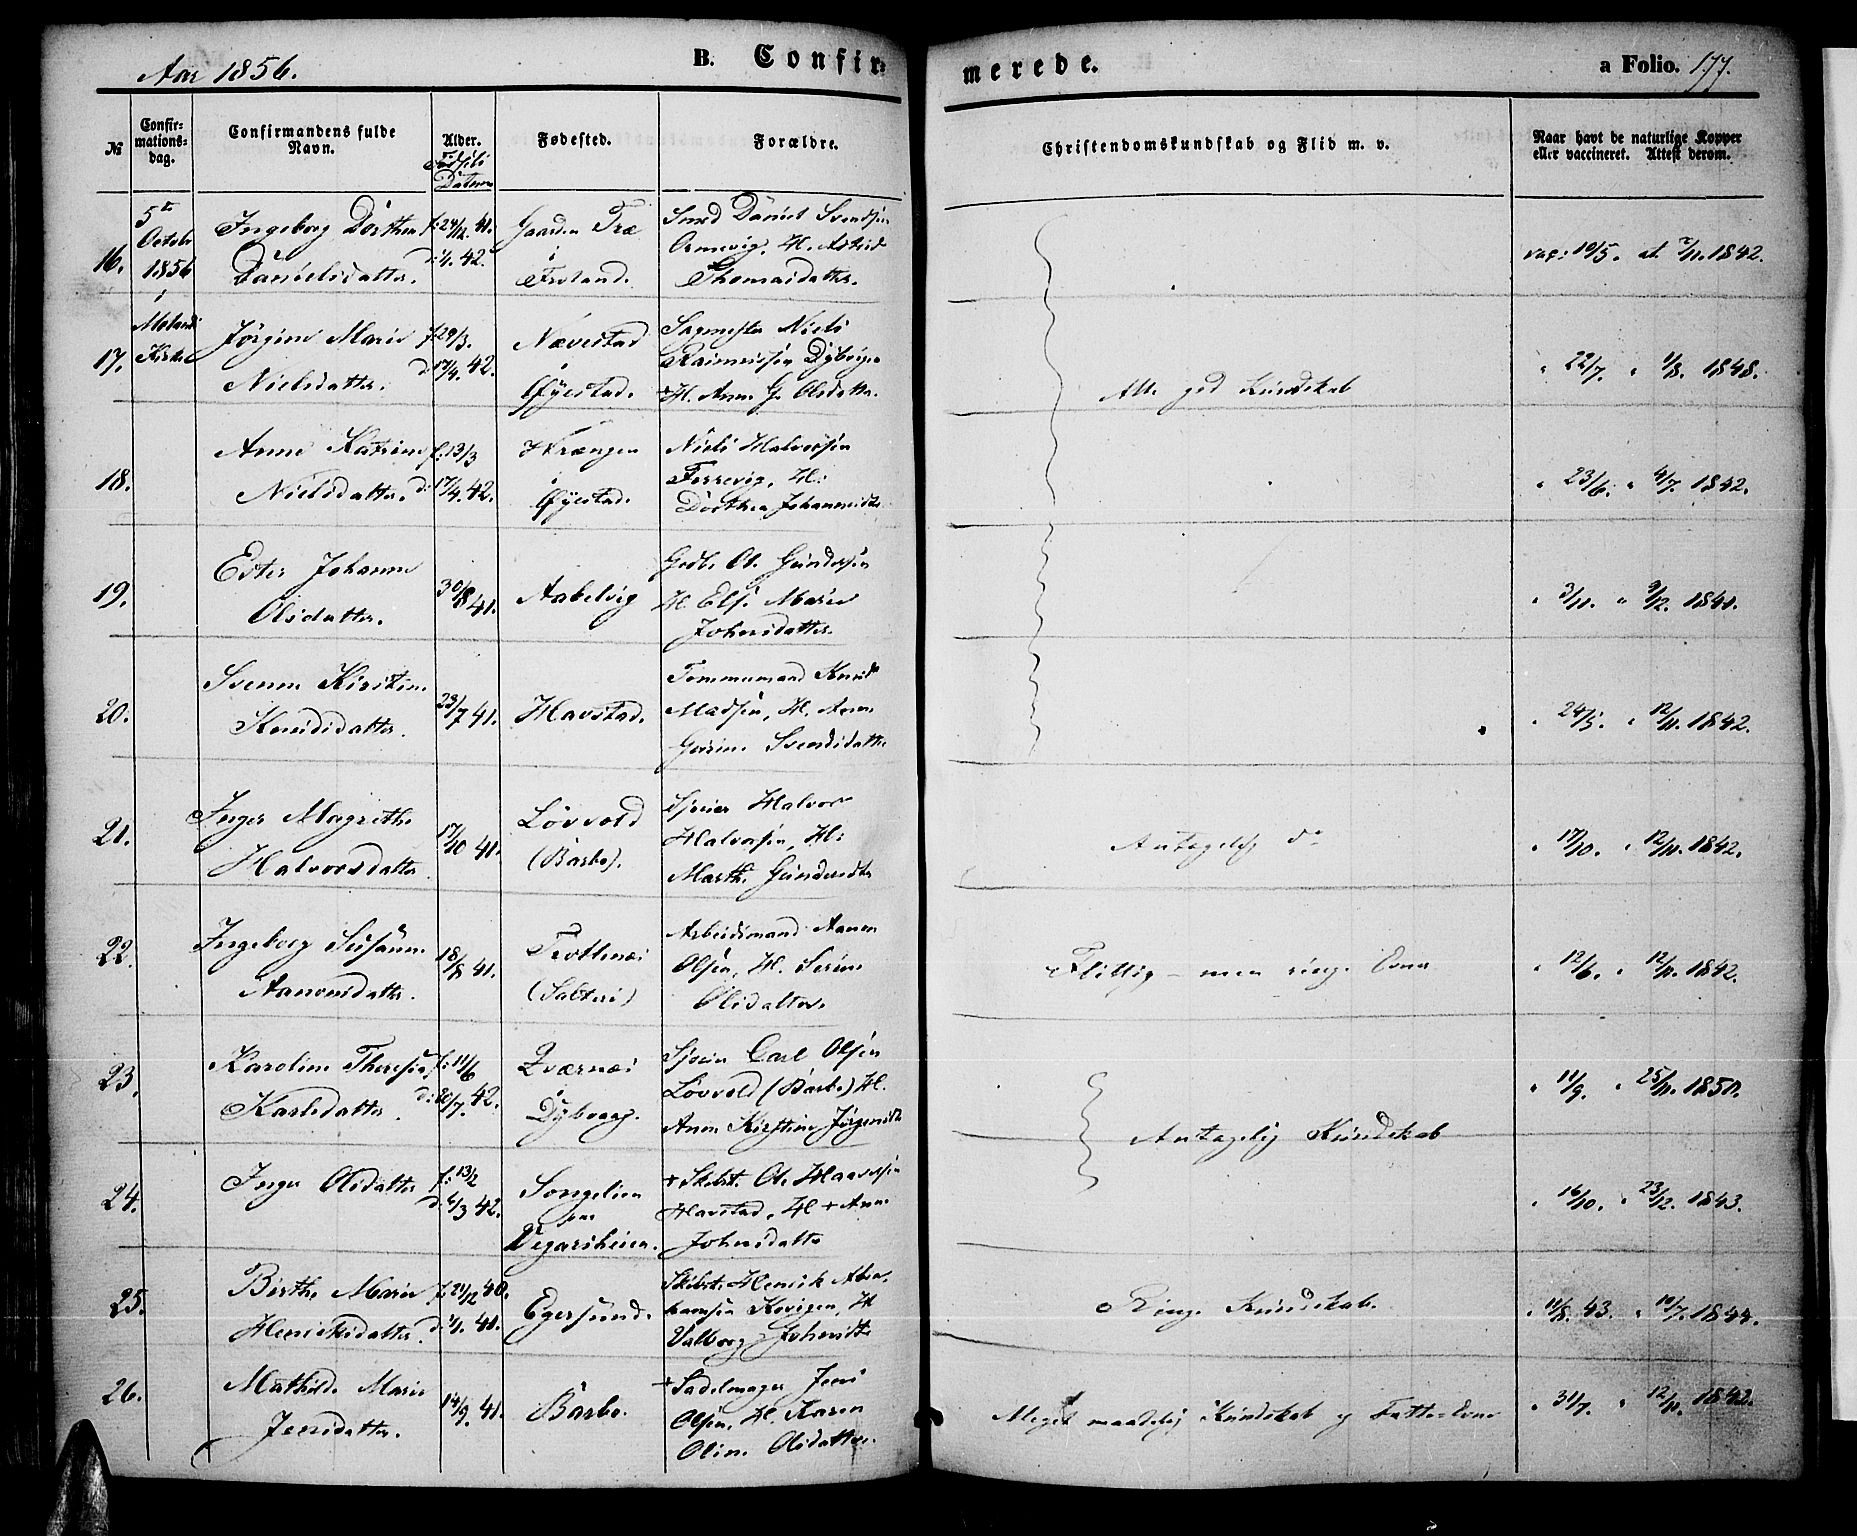 Aar 1856.
B. Confirmerede.
a Folio. 177.
№
Confirmationsdag.
Confirmandens fulde Navn.
Alder.
Fødsels Datum
Fødested.
Forældre.
Christendomskundskab og Flid m. v.
Naar havt de naturlige Kopper eller vaccineret. Attest derom.
16.
5te
Octobr
1856
i
Molands
Kirke
Ingeborg Dorthea
Danielsdatter.
f: 24/12 41.
d: 1/1. 42.
Gaarden Træ
i
Froland.
Smed Daniel Svendsen
Ormevig, H. Astrid
Thomasdatter.
vac: 10/5. at. 7/11. 1842.
17.
Jørgine Marie
Nielsdatter.
f: 29/3.
d: 17/4. 42.
Nævestad
i
Øyestad.
Sagmester Niels
Rasmussen Dybvigen
+H. Anne G. Olsdatter.
Alle god Kundskab
" 22/7. " 1/8. 1848.
18.
Anne Katrine
Nielsdatter.
f: 13/3
d: 17/4. 42.
Wrængen
i
Øyestad.
Niels Halvorsen
Færrevig, H:
Dorthea Johannesdtr.
" 23/6. " 4/7. 1842.
19.
Ester Johanne
Olsdatter.
30/8 41.
Aabelvig
Gdbr. Ol. Gundersen
H. Else Marie
Johnsdatter.
" 3/11. " 9/12. 1841.
20.
Svenne Kirstine
Knudsdatter.
23/7 41.
Havstad.
Tømmermand Knud
Madsen, H. Anne
Gurine Svendsdatter
" 24/5. " 12/11. 1842.
21.
Inger Magrethe
Halvorsdatter.
17/10 41.
Løvvold
(Barbo).
Sjøeier Halvor
Halvorsen, H:
Marthe Gundersdtr
Antagelig do
" 17/10. " 12/11. 1842.
22.
Ingeborg Susanne
Aanonsdatter.
18/8 41.
Trottenæs
(Salteri)
Arbeidsmand Aanon
Olsen, H. Serine
Olsdatter.
Flittig – men ringe Evne
" 12/6. " 12/11. 1842.
23.
Karoline Theresia
Karlsdatter.
f: 11/6
d: 20/7. 42.
Kværnæs
i
Dybvaag.
Carl Olsen
Løvvold (Barbo) H.
Anne Kirstine Jørgensdtr
Antagelig Kundskab
" 11/9. " 25/11. 1850.
24.
Inger Olsdatter
f: 13/2
d: 6/3 42.
Songelien
paa
Vegarsheien.
+ Skibst. Ol. Haavorsen
Havstad, H + Anne
Johnsdatter
" 16/10. " 23/12. 1843.
25.
Birthe Marie
Henriksdatter.
f: 21/12 40.
d: 1/1. 41.
Egersund.
Skibst. Henrik Abra
hamsen Kovigen, H
Valborg Johnsdtr
Ringe Kundskab.
" 11/8. 43. " 10/7. 1844.
26.
Mathilde Marie
Jensdatter.
14/9. 41.
Barbo.
+ Sadelmager Jens
Olsen, H. Karen
Oline Olsdatter.
Meget maadelig Kundskab og Fatte Evne
" 31/7. " 12/11. 1842.